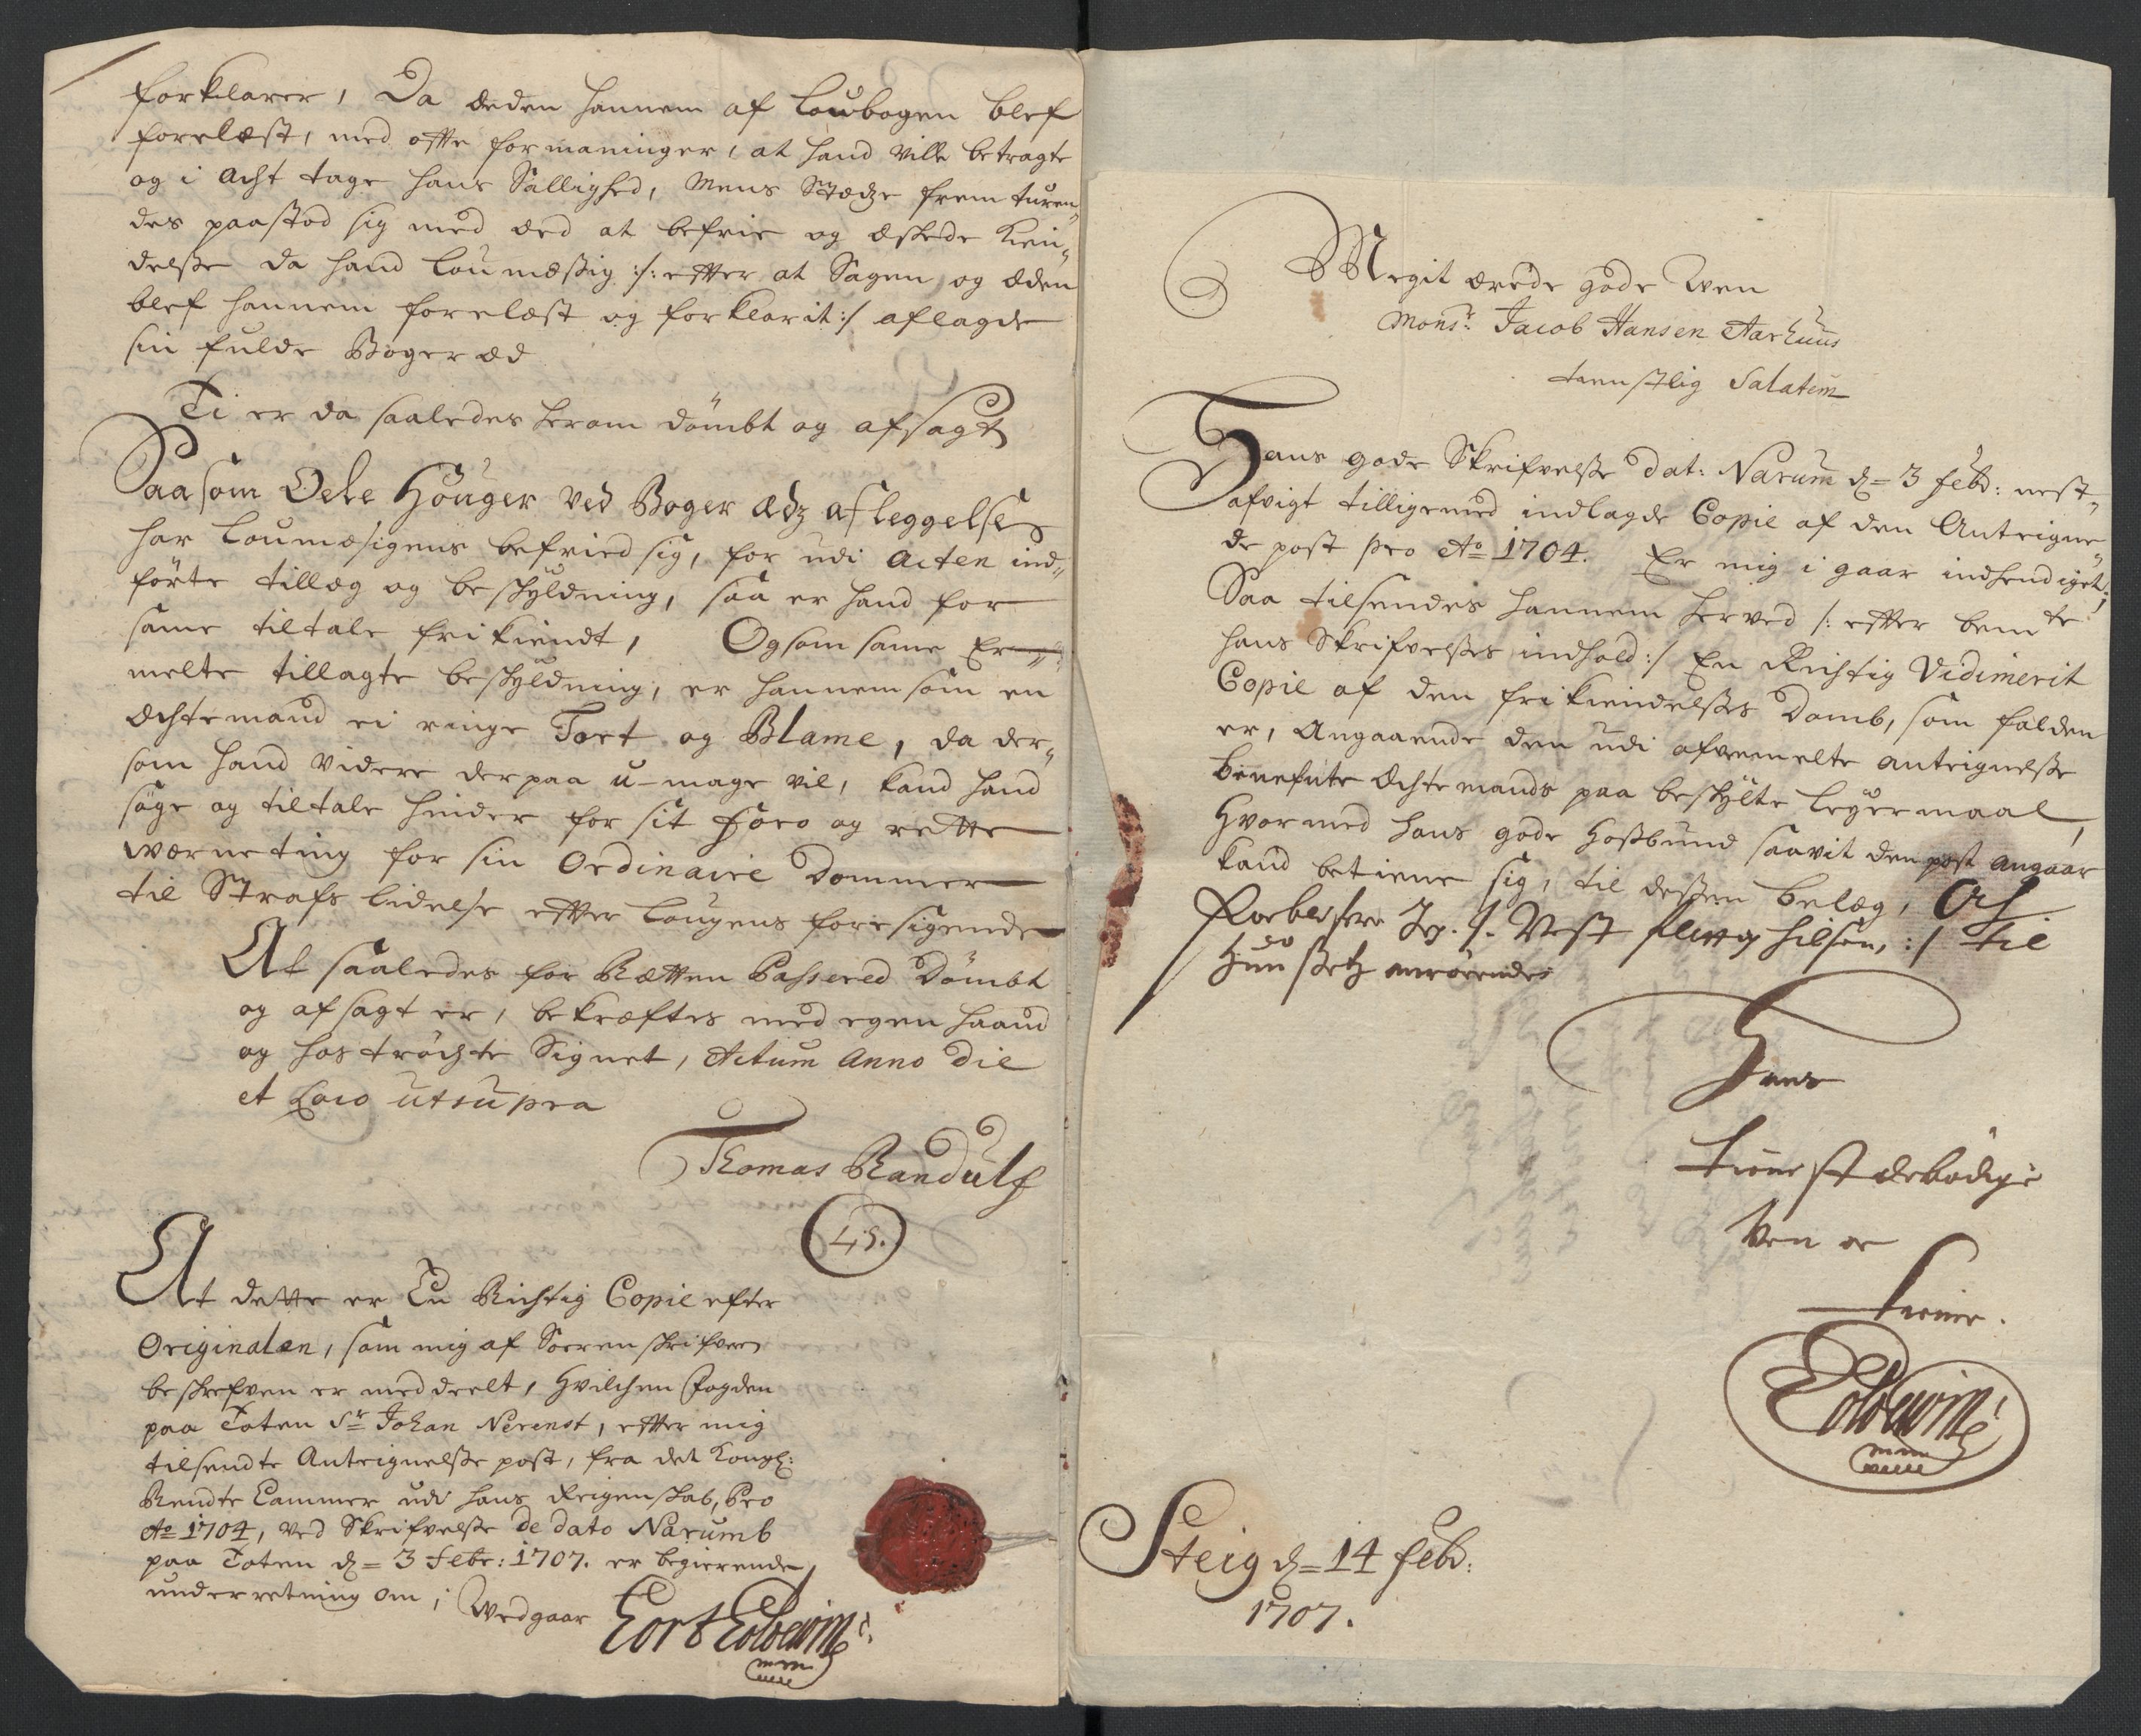 forklarer, Da Æden hannem af Loubogen blef
forelæst, med ofte formaninger, at hand ville betragte
og i acht tage hans Sallighed, Mens Stædze frem turen„
des paastod sig med æed at befrie og æskede kien„
delsse da hand Loumæssig :/: efter at Sagen og Æden
blef hannem forelæst og forklarit :/ aflagde
sin fulde Boger æd
Ti er da saaledes herom dömbt og afsagt
Saasom Oele Höuger ved Boger Ædz afleggelse
har Loumæsigens befried sig, for udi Acten ind„
förte tillæg og beskyldning, saa er hand for
same tiltale frikiendt, Og som same Er„
melte tillagte beskyldning, er hannem som en
Ächtemand ei ringe Tort og Blame, da der„
som hand videre derpaa u-mage vil, kand hand
söge og tiltale hender for sit foro og rette
værneting for sin Ordinaire Dommer
til Strafs lidelse efter Lougens foresigende
At saaledes for Rætten Passered Dömbt
og afsagt er, bekræftes med egen haand
og hoströchte Signet, Actum Anno Die
et Loco utsupra
Thomas Randulf
L.S.
At dette er En Richtig Copie efter
Originalen, som mig af Sorenskrifveren
beskrefven er meddeelt, Hvilchen Fogden
paa Toten Sr Johan Nerenst, efter mig
tilsendte Anteignelsse post, fra det Kongl:
Rendte Cammer udi hans Reigenskab, Pro
Ao 1704, ved Skrifvelsse de dato Narumb
paa Toten d= 3 Febr: 1707. er begierende
underretning om, Vedgaar
Megit ærede gode Ven
Monsr: Jacob Hansen Aarhuus
tienstlig Salutem
Hans gode Skrifvelsse dat: Narum d= 3 Febr: nest„
afvigt tilligemed indlagde Copie af den Anteigne„
de post pro Ao 1704. Er mig i gaar indhendiget;
Saa tilsendes hannem herved /: efter bemte
hans Skrifvelsses indhold :/ En Richtig Vidimerit
Copie af den frikiendelsses Domb, som falden
er, Angaaende den udi ofvenmelte anteignelsse
benefnte Ächtemands paa beskylte Leyermaal,
Hvormed hans gode Hossbund saavit den post angaar
kand betiene sig, til dessen belæg,
Hans
tienst
Ven oc
tiener.
Steig d= 14 Febr:
1707.